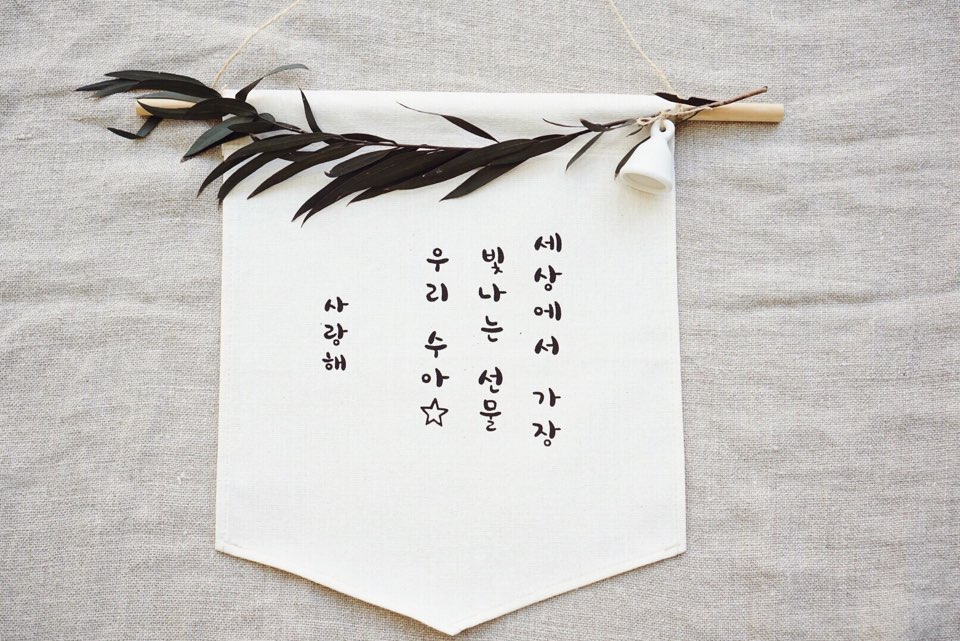 세상에서 가장
빛나는 선물
우리 수아☆
사랑해